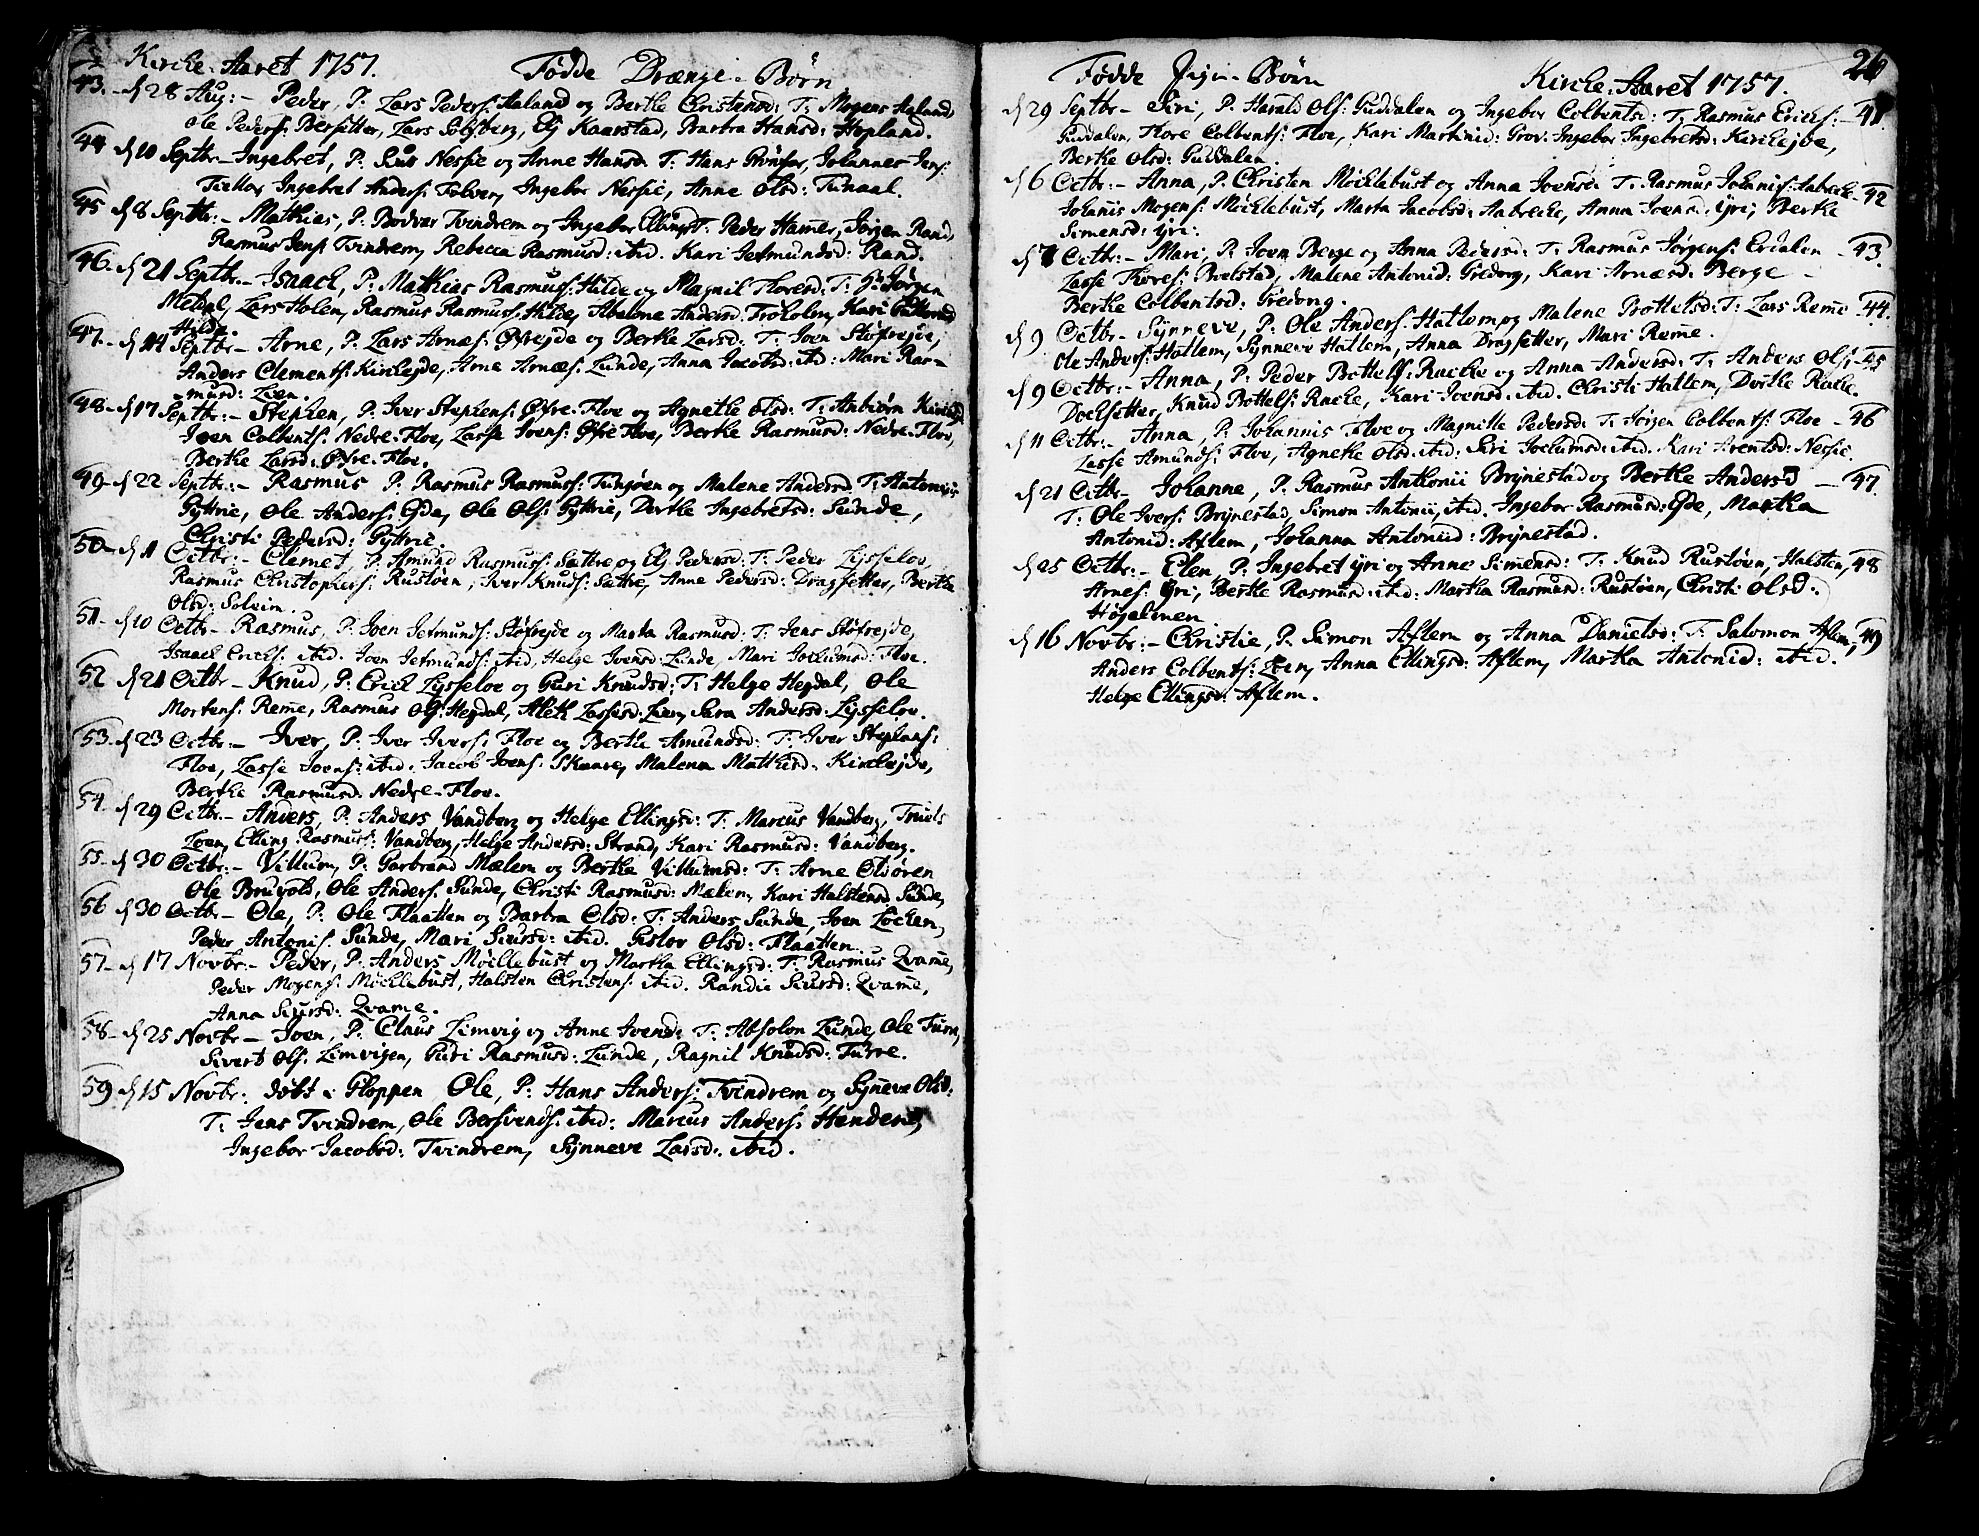 Kirche-Aaret 1757. Fødde Drænge-Børn
43. d 28 Aug: - Peder, P. Lars Peders: Aaland og Berthe Christensd: T: Mogens Aaland,
Ole Peders: Bersetter, Lars Solsberg, Elj Kaarstad, Barbra Hansd: Hopland.
44 d 10 Septbr - Ingebret, P: Nessie og Anne Hansd T: Hans Johannes Jens:
Ingebret Anders: Ingebor Nessie, Anne Olsd: Tunaal.
45 d 8 Septbr: - Mathias, P: Tvindrem og Ingebor T: Peder Hames, Jørgen Rand,
Rasmus Jens: Tvindrem, Rebecca Rasmusd: ibid. Kari Jetmundsd: Rand.
46. d 21 Septbr. - Isaach, P: Mathias Rasmuss: Hilde og Magnil Floresd: T: Jørgen
Meldal, Lars Holen, Rasmus Rasmuss: Hilde, Abelone Andersd: Troholen, Kari
Hilde.
47. d 14 Septbr - Arne, P: Lars Arnæs: Øvrejde og Berthe Larsd: T: Joen Støfrejde,
Anders Clements: Kirchejde, Arne Arnæs: Lunde, Anna Jacobsd: ibid: Mari Ras-
musd: Loen.
48 - d 17 Septbr: - Stephen, P: Iver Stephens: Øfre-Floe og Agnethe Olsd: T: Anbiørn
Joen Colbents: Nedre-Floe, Lasse Joens: Øfre Floe, Berthe Rasmusd: Nedre-Floe,
Berthe Larsd: Øfre-Floe.
49 - d 22 Septbr: - Rasmus P: Rasmus Rasmuss: Tungøen og Malene Andersd T: Antonius
Pyttrie, Ole Anders: Gde, Ole Ols: Pyttrie, Dorthe Ingebretsd: Sunde,
Christi Pedersd: Pyttrie.
50 - d 1 Octbr: - Clemet, P: Amund Rasmuss: Sættre og Elj Pedersd: T: Peder Lysseloe,
Rasmus Christophers: Rustøen, Iver Knuds: Sættre, Anne Pedersd: Dragsetter, Berthe
Olsd: Solvim.
51 - d 10 Octbr - Rasmus, P: Joen Jetmunds: Støfrejde og Marta Rasmusd: T: Jens Støfrejde,
Isaach Erichs: ibid. Joen Jetmunds: ibid, Helge Ivensd: Lunde, Mari Jochumsd: Floe.
52 d 21 Octbr - Knud, P: Erich Lysseloe og Guri Knudsd: T: Helge Hegdal, Ole
Mortens: Reme, Rasmus Ols: Hegdal, Aleth Lassesd: Loen, Sara Andersd: Lysseloe.
53 - d 23 Octbr: - Iver, P: Iver Ivers: Floe og Berthe Amundsd: T: Iver Stephans:
Floe, Lasse Joens: ibid. Jacob Joens: Skaare, Malena Mathisd: Kirchejde,
Berthe Rasmusd: Nedre-Floe.
54. d 29 Octbr. - Anders, P: Anders Vandberg og Helge Ellingsd: T: Marcus Vandberg, Truels
Loen, Elling Rasmuss: Vandberg, Helge Andersd: Strand, Kari Rasmusd: Vandberg.
55. d 30 Octbr: - Villum, P: Garbrand Mælem og Bertha Villumsd: T: Arne Olsøren
Ole Bruvold, Ole Anders: Sunde, Christi Rasmusd: Mælem, Kari Halstensd Sunde,
56 d 30 Octbr - Ole, P: Ole Flaatten og Barbra Olsd: T: Anders Sunde, Joen Lochen,
Peder Antonis: Sunde, Mari Siursd: ibid. Gislov Olsd: Flaatten.
57 - d 17 Novbr: - Peder, P: Anders Møcklebust og Martha Ellingsd: T: Rasmus Qvame,
Peder Mogens: Møcklebust, Halsten Christens: ibid. Randie Siursd: Qvame,
Anna Siursd: Qvame.
58 - d 25 Novbr - Joen, P: Claus Limvig og Anne Ivensd: T: Absolon Lunde, Ole
Sivert Ols: Limvigen, Guri Rasmusd: Lunde, Ragnil Knudsd:
59 d 15 Novbr: døbt i Gloppen Ole, P: Hans Anders: Tvindrem og Synneve Olsd:
T: Jens Tvindrem, Ole Bersvends: ibid: Marcus Anders: Henden,
Ingebor Jacobsd: Tvindrem, Synneve Larsd: ibid.
Fødde Pige-Børn Kirche-Aaret 1757. 26
d 29 Septbr - Siri, P: Harald Ols: Guddalen og Ingebor Colbentsd: T: Rasmus Erichs: - 41
Guddalen, Flore Colbents: Floe, Kari Martinid: Grov. Ingebor Ingebretsd: Kirchejde,
Berthe Olsd: Guddalen.
d 6 Octbr: - Anna, P: Christen Möcklebust og Anna Joensd: T: Rasmus Johanis: Aabreche - 42
Johanis Mogens: Möcklebust, Marta Jacobsd: Aabreche, Anna Joensd yri, Berthe
Simensd: yri.
d 7 Octbr: - Mari, P: Joen Berge og Anna Pedersd: T: Rasmus Jørgens: Erdalen - 43
Lasse Thores: Malene Antonid: Gredong, Kari Arnæsd: Berge
Berthe Colbentsd: Gredong.
d 9 Octbr - Synneve, P: Ole Anders: Hatlem og Malene Bottelsd: T: Lars Reme 44.
Ole Anders: Hatlem, Synneve Hatlem, Anna Dragsetter, Mari Reme.
d 9 Octbr: - Anna, P: Peder Bottels: Rache og Anna Andersd: T: Anders Ols: 45
Dochsetter, Knud Bottels: Rache, Kari Joensd: ibid. Christi Hatlem, Dorthe Rache.
d 11 Octbr: - Anna, P: Johannis Floe og Magnille Pedersd: T: Jørgen Colbents: Floe - 46
Lasse Amunds: Floe, Agnethe Olsd: ibid: Siri Jochumsd: ibid. Kari Arentsd: Nessie.
d 21 Octbr - Johanne, P: Rasmus Anthonii Brynestad og Berthe Andersd - 47
T: Ole Ivers: Brynestad, Simon Antonii, ibid. Ingebor Rasmusd: Gde, Martha
Antonid: Aflem, Johanna Antonid: Brynestad.
d 25 Octbr: - Elen, P: Ingebret yri og Anne Simensd: T: Knud Rustøen, Halsten, 48
Arnes: yri, Berthe Rasmusd: ibid: Martha Rasmusd: Rustøen, Christi Olsd:
Høgalmen
d 16 Novbr: - Christie, P: Simon Aflem og Anna Danielsd: T: Salomon Aflem, 49
Anders Colbents: Loen, Anna Ellingsd: Aflem, Martha Antonid: ibid.
Helge Ellingsd: Aflem.